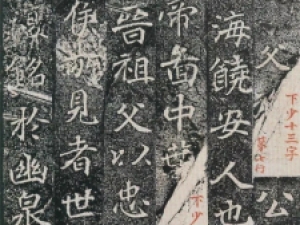 父 公
下少十三字
第七行
海饒安人也
帝嚳中葉
下少
晉祖父以忠
見者世
銘於幽泉